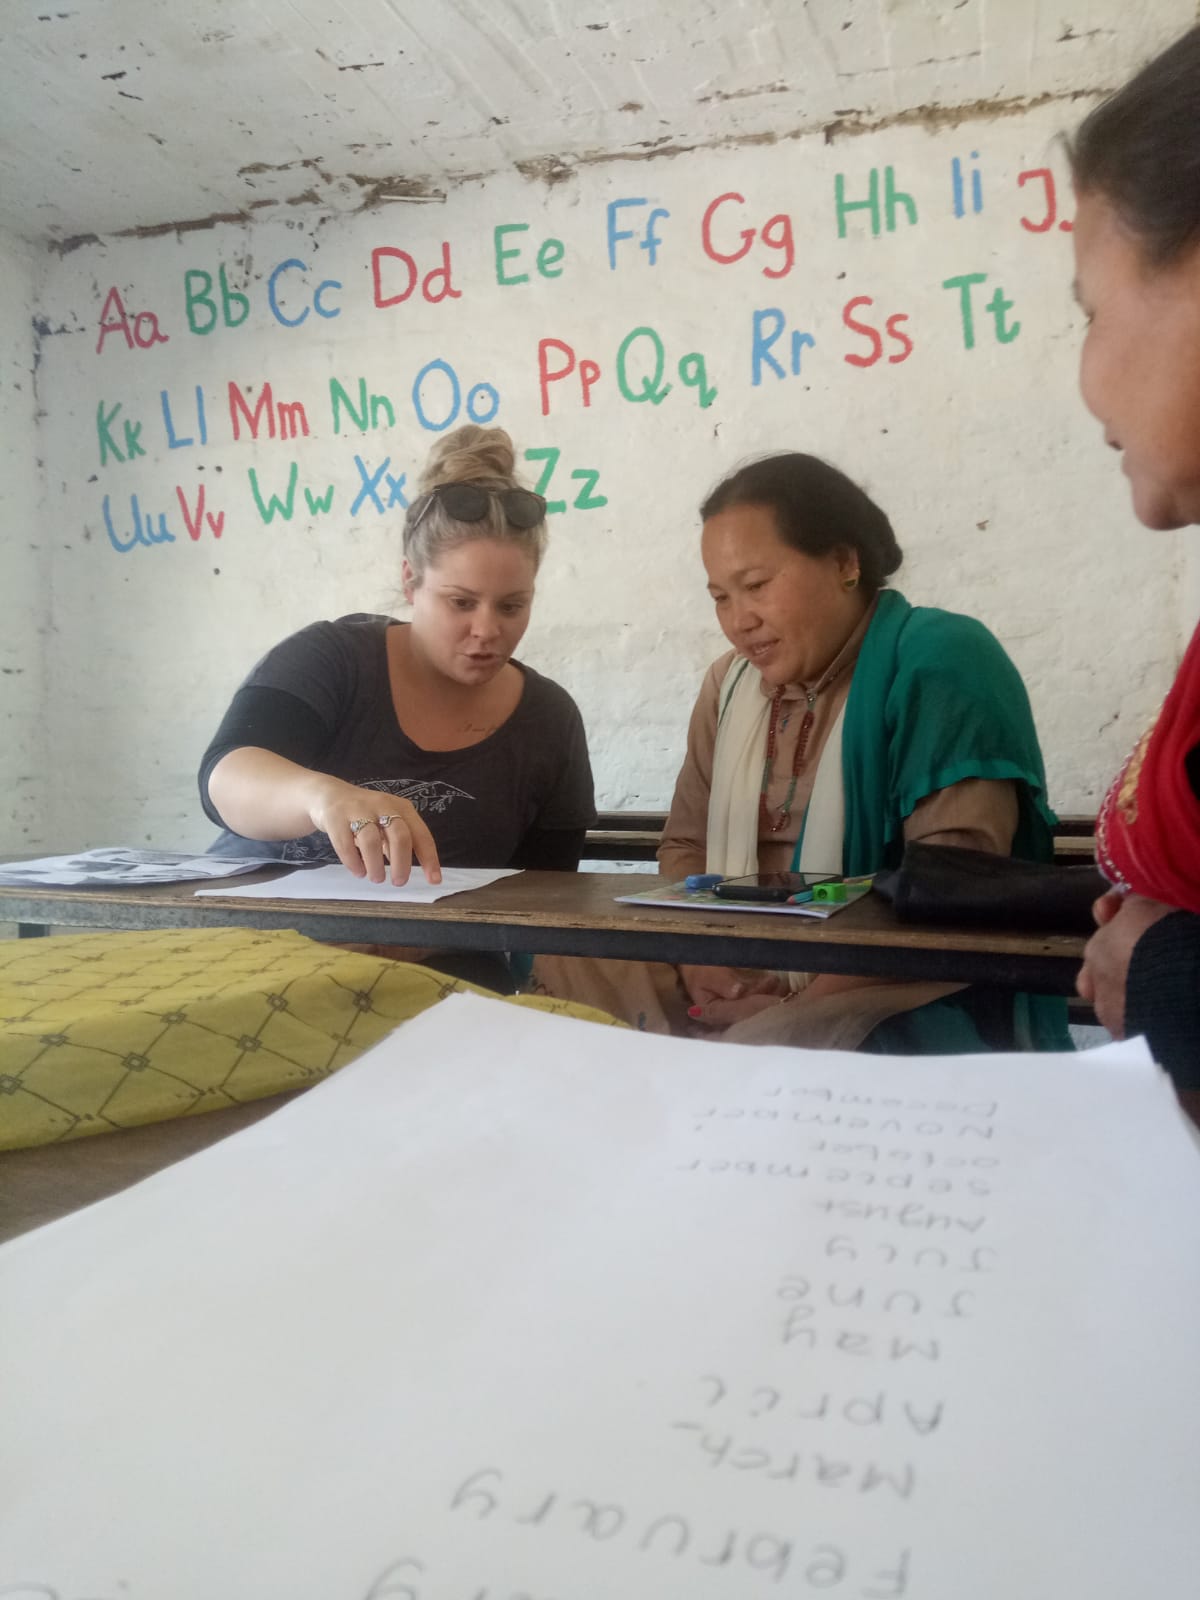 Aa Bb Cc Dd Ee Ff Gg Hh Ii J
Kk Ll Mm Nn Oo Pp Qq Rr Ss Tt
Uu Vv Ww Xx Zz
February
March-
April
May
June
July
August
September
October
November
December